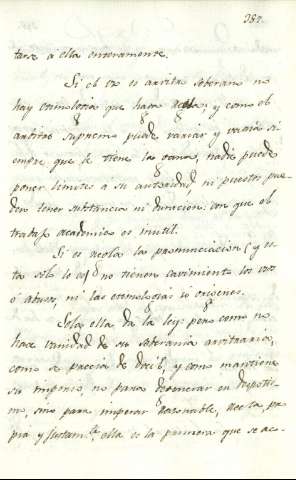 287.
tarse á ella enteramente.
Si el uso es arvitro soberano no
hay etimología que haga regla; y como el
arvitro supremo puede variar y varía si-
empre que le tiene la gana, nadie puede
poner límites a su autoridad, ni puestos pue-
den tener substancia ni duracion: con que el
trabajo académico es inutil.
Si es regla la pronunciacion (y es-
ta sólo lo es) no tienen cavimiento los usos
o abusos, ni las etimologías ú orígenes.
Sola ella da la ley: pero como no
hace vanidad de su soberanía arvitraria,
como se precia de docil, y como mantiene
su imperio, no para degenerar en despotis-
mo, sino para imperar razonable, recta, pro-
pia y justamte, ella es la primera que se aco-